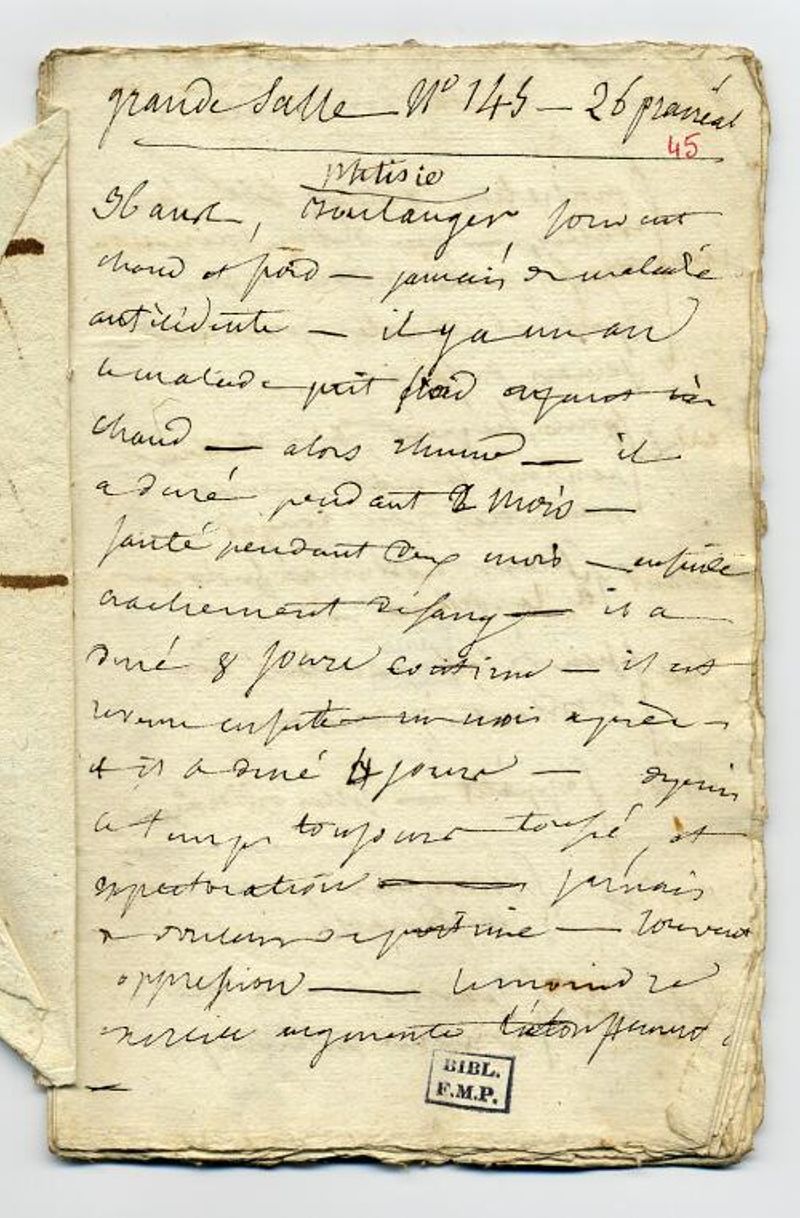 grande Salle N° 145 — 26 prairéal
45
phtisie
36 ans, Boulanger souvent
chaud et froid — jamais de maladie
antécédente — il y a un an
le malade prit froid ayant
chaud — alors rhume — il
a duré pendant 2 mois —
santé pendant deux mois — ensuite
crachement de sang — il a
duré 8 jours continu — il est
revenu ensuite un mois après —
et il a duré 4 jours — depuis
ce temps toujours toussé et
expectoration — jamais
de douleur de poitrine — souvent
oppression — le moindre
exercice augmente l'étouffement
BIBL.
F.M.P.